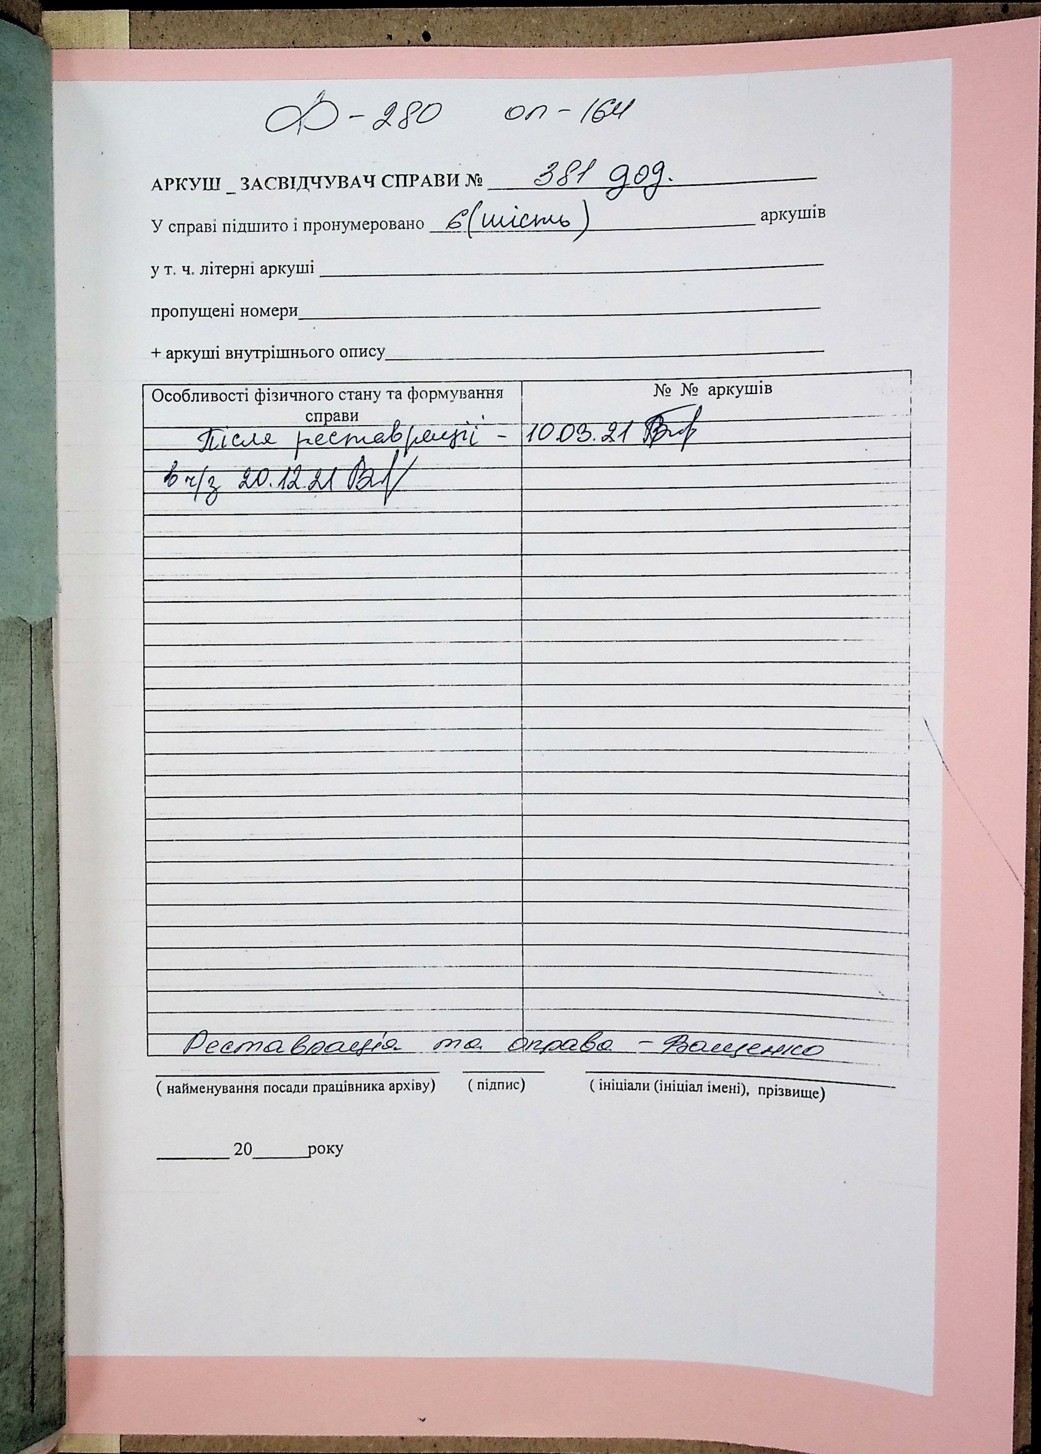 Ф-280 оп-164
АРКУШ _ ЗАСВІДЧУВАЧ СПРАВИ № 381 дод.
У справі підшито і пронумеровано 6 (шість) аркушів
у т. ч. літерні аркуші
пропущені номери
+ аркуші внутрішнього опису
Особливості фізичного стану та формування справи
№ № аркушів
Після реставрації - 10.03.21
в ч/з 20.12.21
Реставрація та оправа - Ващенко
( найменування посади працівника архіву) ( підпис) ( ініціали (ініціал імені), прізвище)
20 року